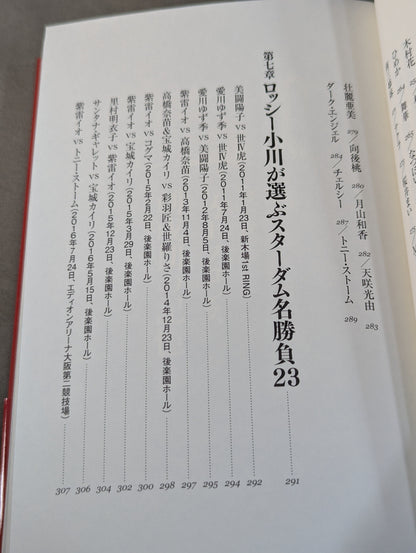 木村花
ひめか
舞華
壮麗亜美 279／向後桃 280／月山和香 282／天咲光由 283
ダーク・エンジェル 284／チェルシー 287／トニー・ストーム 289
第七章 ロッシー小川が選ぶスターダム名勝負23 291
美闘陽子 vs 世Ⅳ虎（2011年1月23日、新木場1st RING） 292
愛川ゆず季 vs 世Ⅳ虎（2011年7月24日、後楽園ホール） 294
愛川ゆず季 vs 美闘陽子（2012年8月5日、後楽園ホール） 295
紫雷イオ vs 高橋奈苗（2013年11月4日、後楽園ホール） 297
高橋奈苗＆宝城カイリ vs 彩羽匠＆世羅りさ（2014年12月23日、後楽園ホール） 298
紫雷イオ vs コグマ（2015年2月22日、後楽園ホール） 300
紫雷イオ vs 宝城カイリ（2015年3月29日、後楽園ホール） 302
里村明衣子 vs 紫雷イオ（2015年12月23日、後楽園ホール） 304
サンタナ・ギャレット vs 宝城カイリ（2016年5月15日、後楽園ホール） 306
紫雷イオ vs トニー・ストーム（2016年7月24日、エディオンアリーナ大阪第二競技場） 307